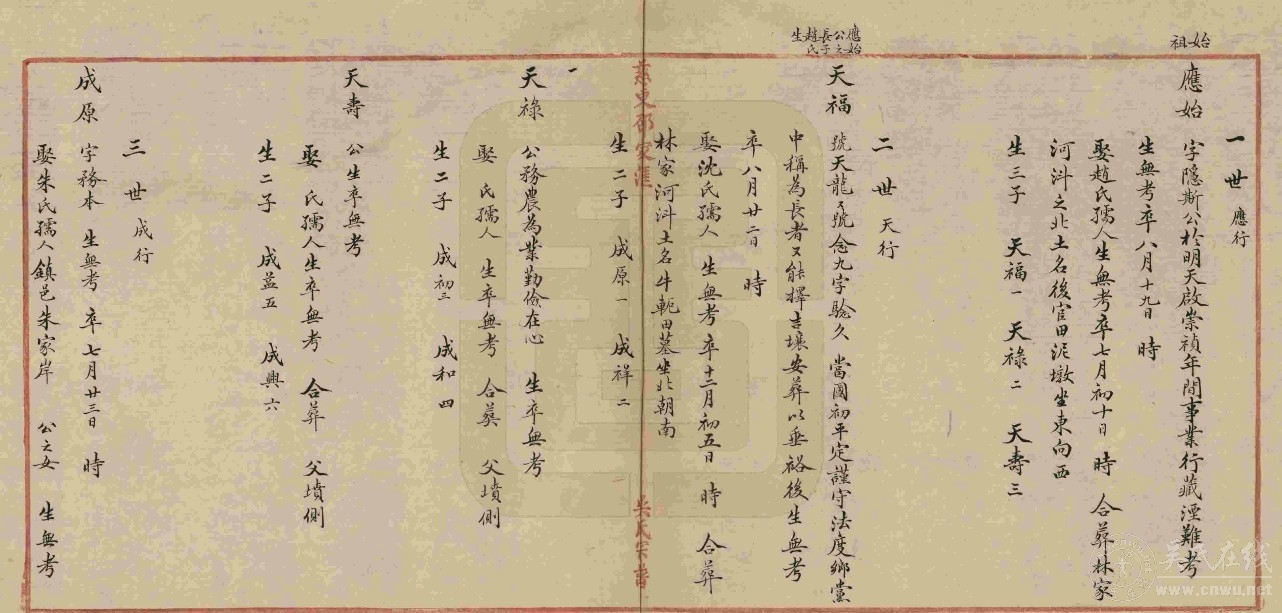 始祖
一世 應行
應始 字隱斯公於明天啟崇禎年間事業行藏湮難考
生無考卒八月十九日 時
娶趙氏孺人生無考卒七月初十日 時 合葬林家
河㳆之北土名後官田泥墩坐東向西
生三子 天福一 天祿二 天壽三
二世 天行
應始公之長子趙氏生
天福 號天龍又號念九字騐久 當國初平定謹守法度鄉黨
中稱為長者又能擇吉壤安葬以垂裕後生無考
卒八月廿二日 時
娶沈氏孺人 生無考 卒十二月初五日 時 合葬
林家河㳆土名牛軛田墓坐北朝南
生二子 成原一 成祥二
慈東邵家滙
吳氏宗譜
一
天祿 公務農為業勤儉在心 生卒無考
娶 氏孺人 生卒無考 合葬 父墳側
生二子 成初三 成和四
天壽 公生卒無考
娶 氏孺人生卒無考 合葬 父墳側
生二子 成益五 成興六
三世 成行
成原 字務本 生無考 卒七月廿三日 時
娶朱氏孺人鎮邑朱家岸 公之女 生無考
吴氏在线
www.cnwu.net